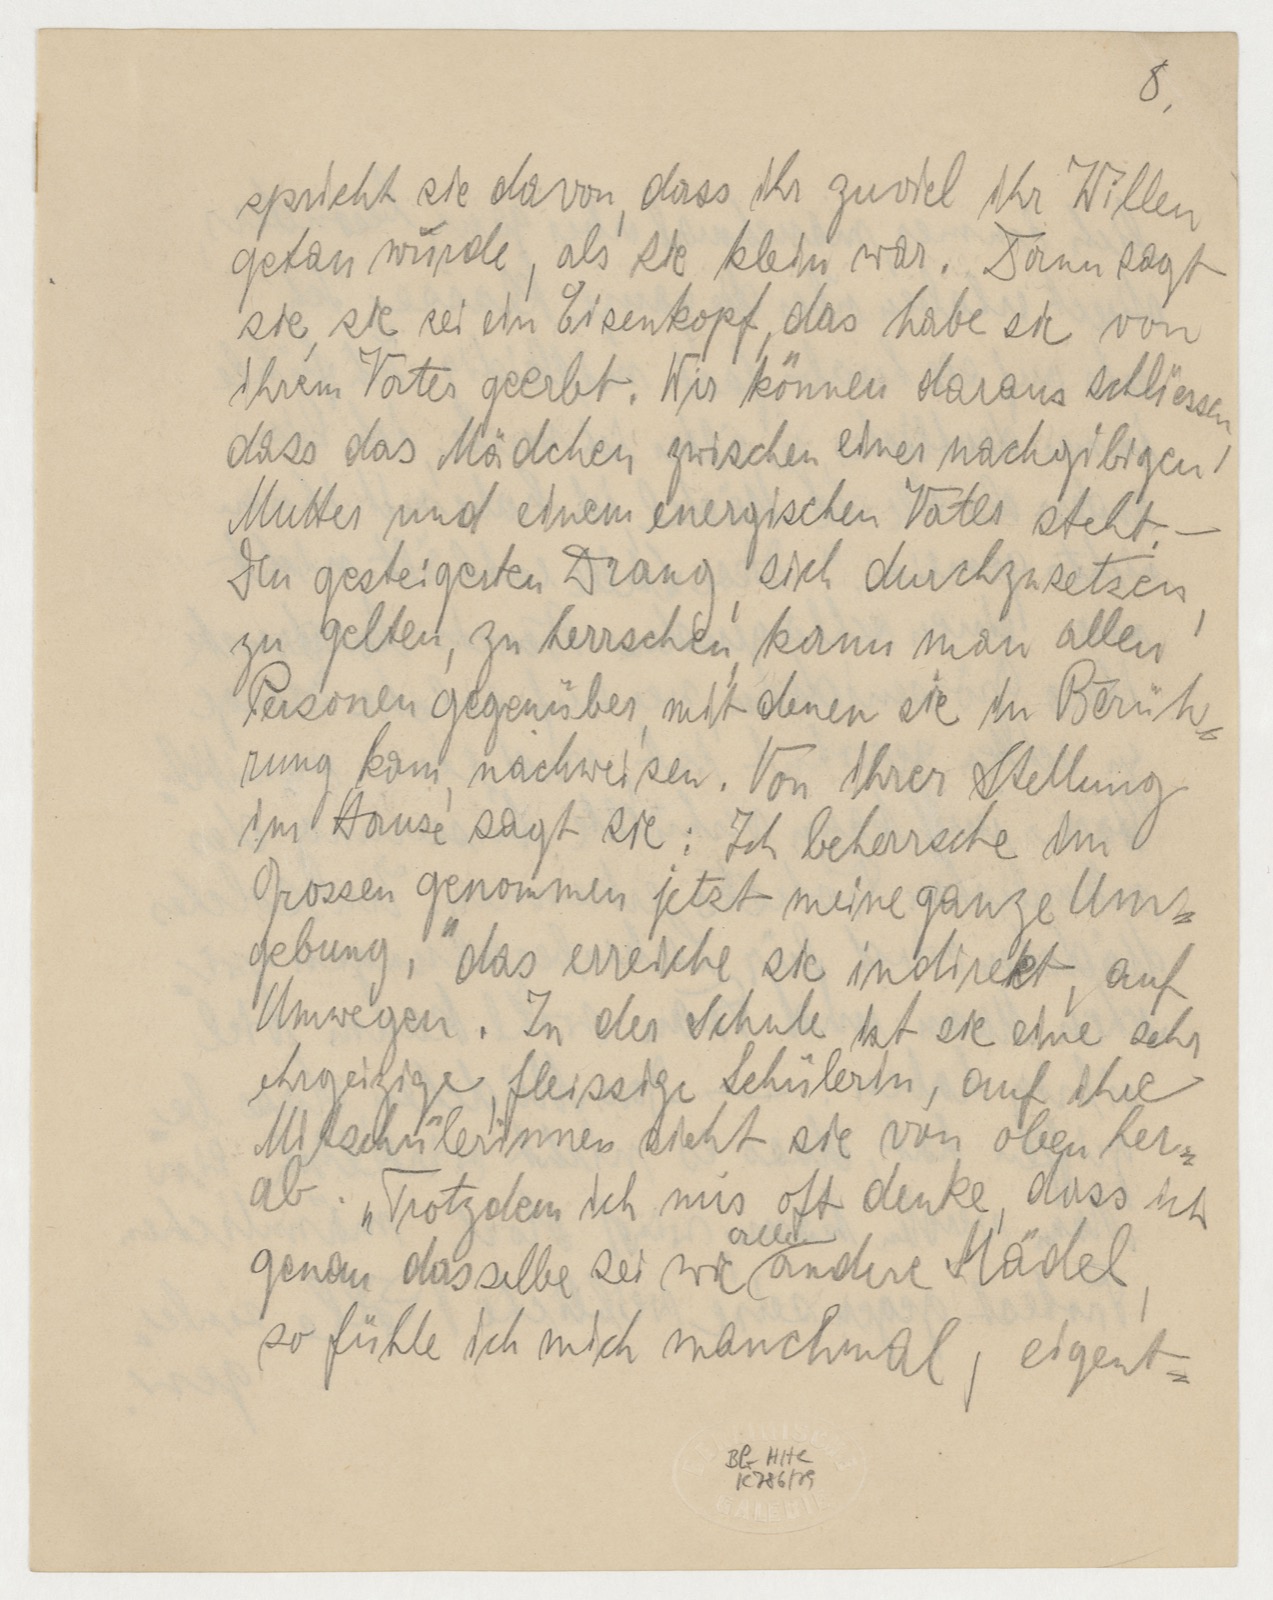 8.
spricht sie davon, dass ihr zuviel ihr Willen
getan würde, als sie klein war. Dann sagt
sie, sie sei ein Eisenkopf, das habe sie von
ihrem Vater geerbt. Wir können daraus schliessen,
dass das Mädchen zwischen einer nachgibigen
Mutter und einem energischen Vater steht. –
Den gesteigerten Drang, sich durchzusetzen,
zu gelten, zu herrschen, kann man allen
Personen gegenüber, mit denen sie in Berüh=
rung kam, nachweisen. Von ihrer Stellung
im Hause sagt sie: Ich beherrsche im
Grossen genommen jetzt meine ganze Um=
gebung," das erreiche sie indirekt, auf
Umwegen. In der Schule ist sie eine sehr
ehrgeizige, fleissige Schülerin, auf ihre
Mitschülerinnen sieht sie von oben her=
ab. „Trotzdem ich mir oft denke, dass ich
allen
genau dasselbe sei wie andere Mädel,
so fühle ich mich manchmal, eigent=
BG HHC
K786/79
GALERIE